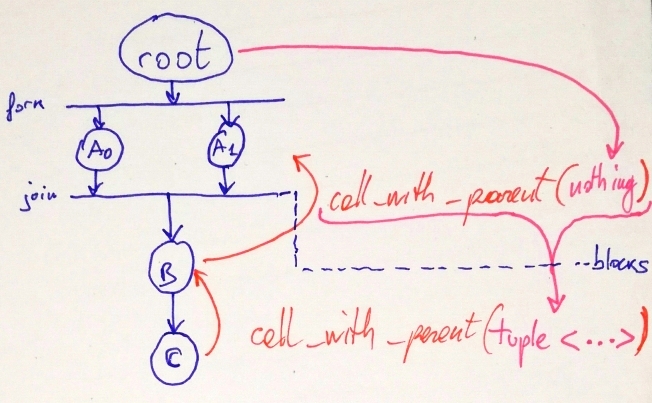 root
fork
A0
A1
join
call_with_parent(nothing)
B
...blocks
call_with_parent(tuple <...>)
C